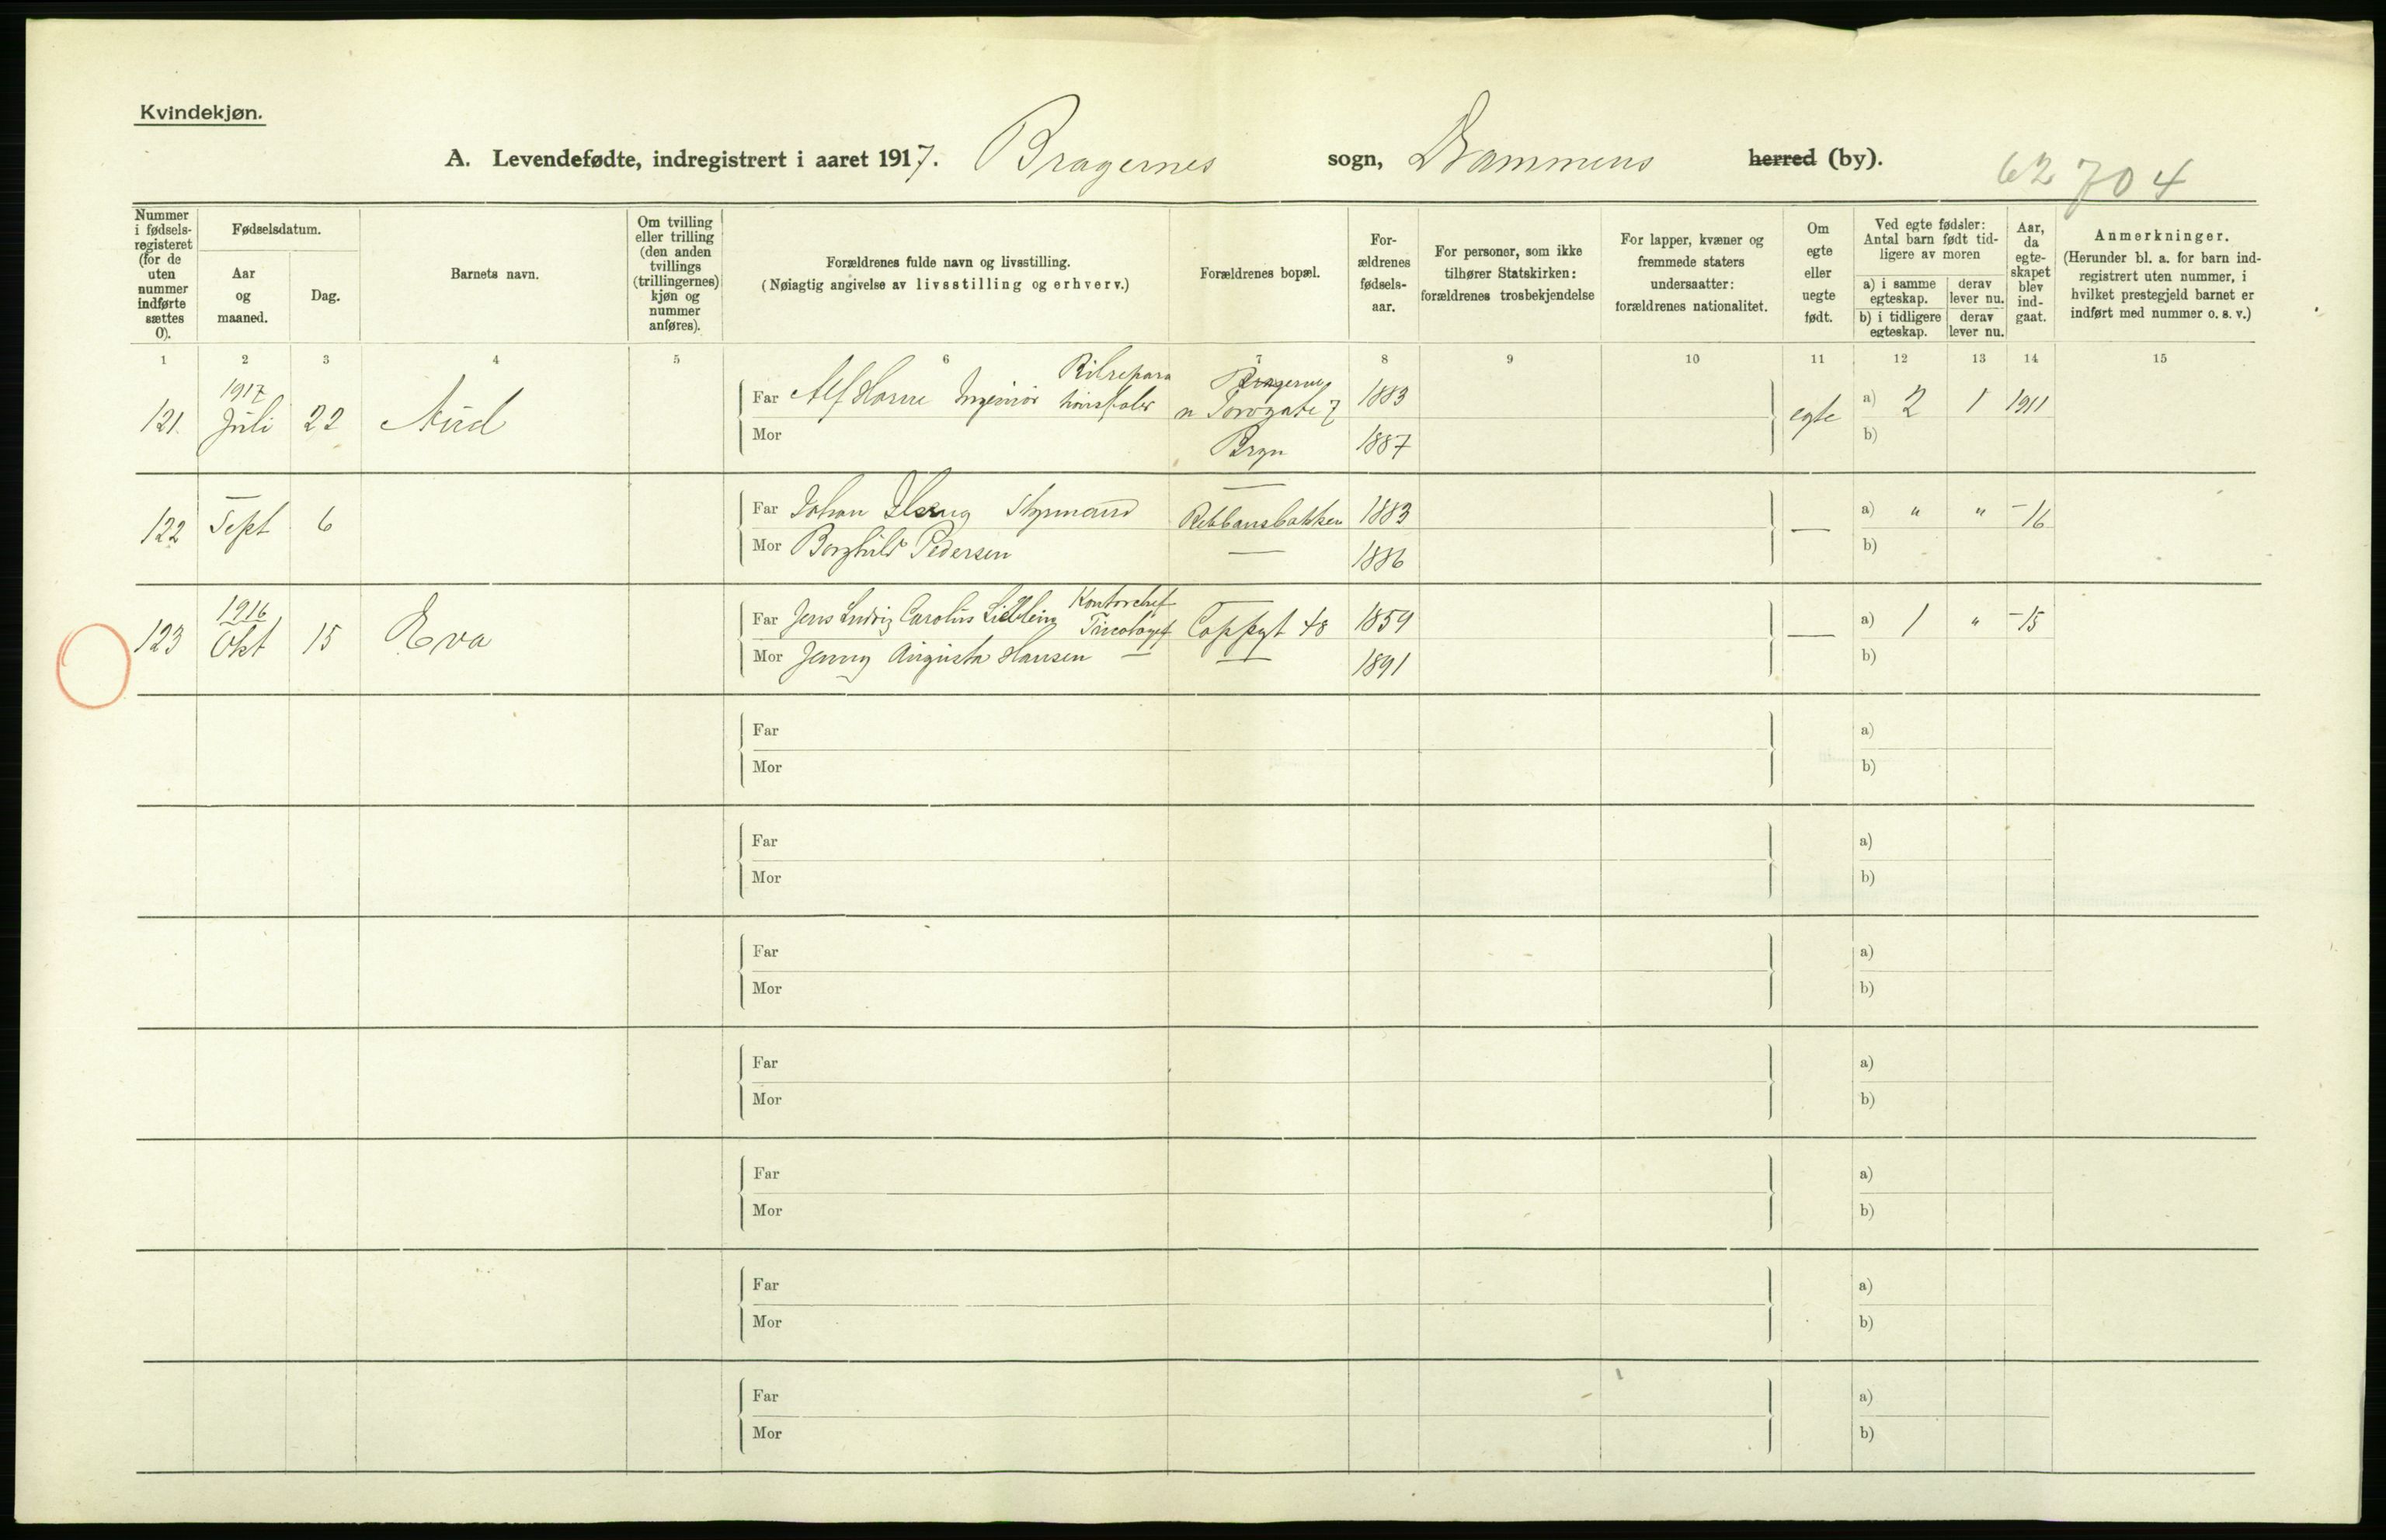 Kvindekjøn.
A. Levendefødte, indregistrert i aaret 1917. Bragernes sogn, Drammens herred (by).
62704
Nummer i fødsels-registeret (for de uten nummer indførte sættes 0).
Fødselsdatum.
Aar og maaned.
Dag.
Barnets navn.
Om tvilling eller trilling (den anden tvillings (trillingernes) kjøn og nummer anføres).
Forældrenes fulde navn og livsstilling.
(Nøiagtig angivelse av livsstilling og erhverv.)
Forældrenes bopæl.
For-ældrenes fødsels-aar.
For personer, som ikke tilhører Statskirken: forældrenes trosbekjendelse
For lapper, kvæner og fremmede staters undersaatter: forældrenes nationalitet.
Om egte eller uegte født.
Ved egte fødsler: Antal barn født tid-ligere av moren
a) i samme egteskap.
derav lever nu.
b) i tidligere egteskap.
derav lever nu.
Aar, da egte-skapet blev ind-gaat.
Anmerkninger.
(Herunder bl. a. for barn ind-registrert uten nummer, i hvilket prestegjeld barnet er indført med nummer o. s. v.)
1 2 3 4 5 6 7 8 9 10 11 12 13 14 15
121. 1917 Juli 22 Aud
Far Alf Ingeniør Bragernes n Torvgate 7 1883 egte a) 2 1 1911
Mor 1887 b)
122 Sept 6
Far Johan Styrmand — 1883 — a) " " -16
Mor Borghild Pedersen — 1886 b)
123 1916 Okt 15 Eva
Far Jens Ludvig Carolus Kontorchef Cappgt 48 1859 — a) 1 " -15
Mor Jenny Augusta Hansen — — 1891 b)
Far a)
Mor b)
Far a)
Mor b)
Far a)
Mor b)
Far a)
Mor b)
Far a)
Mor b)
Far a)
Mor b)
Far a)
Mor b)